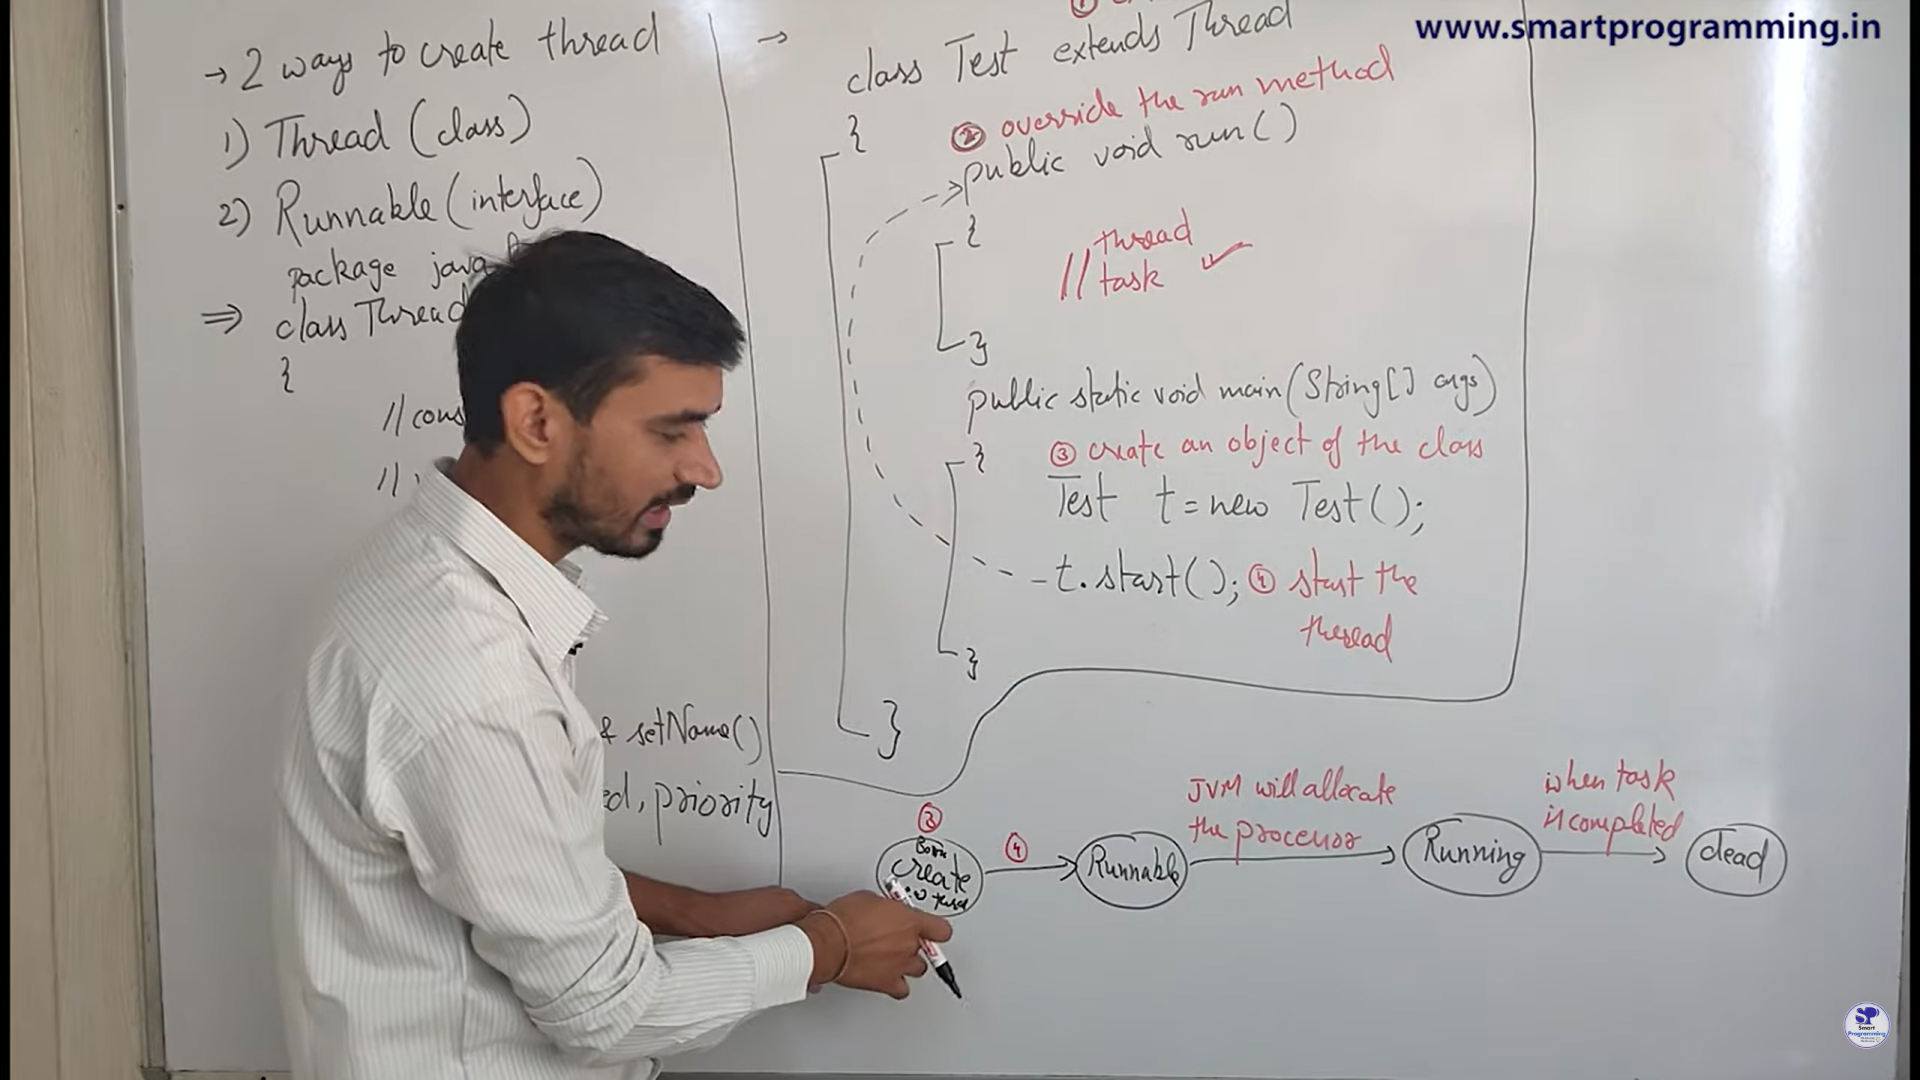 www.smartprogramming.in
→ 2 ways to create thread
1) Thread (class)
2) Runnable (interface)
package java
⇒ class Thread
{
// cons
//
& setName()
ed, priority
→
①
class Test extends Thread
{
② override the run method
public void run()
{
// thread
task ✓
}
public static void main(String[] args)
{
③ create an object of the class
Test t = new Test();
t.start(); ④ start the
thread
}
}
③
Born
create
④
Runnable
JVM will allocate
the processor
Running
when task
is completed
dead
SP
Smart
Programming